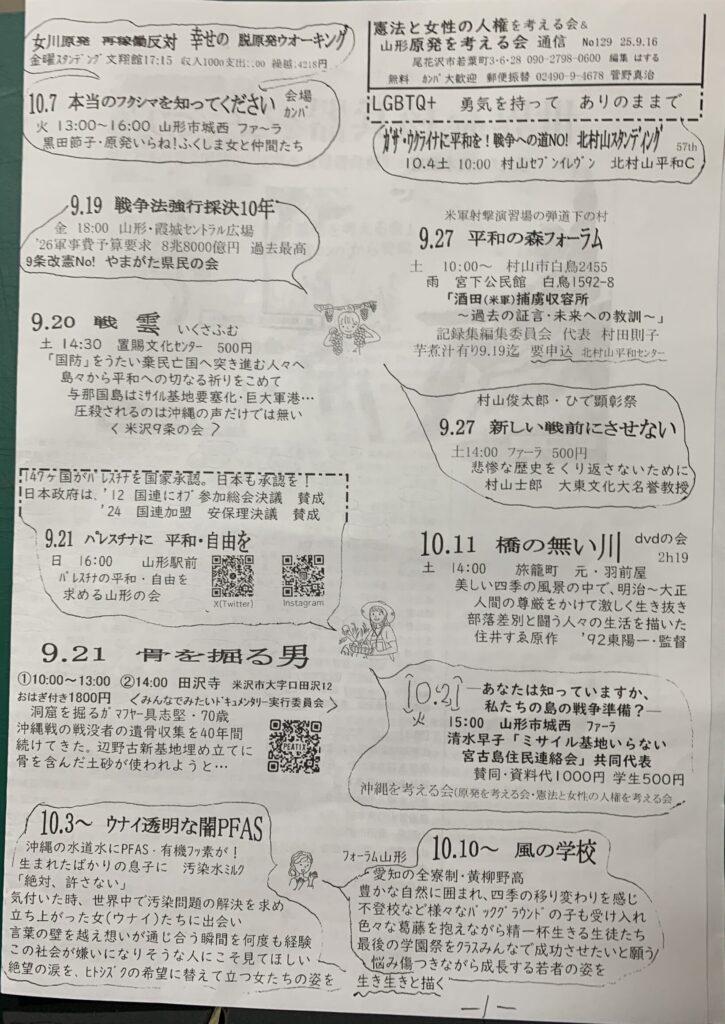 女川原発 再稼働反対 幸せの 脱原発ウオーキング
金曜スタンディング 文翔館17:15 収入100o支出::.00 繰越:4218円
10.7 本当のフタシマを知ってください 会場カンパ
火 13:00〜16:00 山形市城西 ファ〜ラ
黒田節子・原発いらね!ふくしま女と仲間たち
憲法と女性の人権を考える会&
山形原発を考える会 通信 No129 25.9.16
尾花沢市若葉町3-6-28 090-2798-0600 編集 はする
無料 カンパ大歓迎 郵便振替 02490-9-4678 菅野真治
LGBTQ+ 勇気を持って ありのままで
ガザ・ウクライナに平和を!戦争への道NO! 北村山スタンディング 57th
10.4土 10:00 村山セブンイレヴン 北村山平和C
9.19 戦争法強行採決10年
金 18:00 山形・霞城セントラル広場
'26軍事費予算要求 8兆8000億円 過去最高
9条改憲No! やまがた県民の会
米軍射撃演習場の弾道下の村
9.27 平和の森フォーラム
土 10:00〜 村山市白鳥2455
雨 宮下公民館 白鳥1592-8
「酒田(米軍)捕虜収容所
〜過去の証言・未来への教訓〜」
記録集編集委員会 代表 村田則子
芋煮汁有り9.19迄 要申込 北村山平和センター
9.20 戦 雲 いくさふむ
土 14:30 置賜文化センター 500円
「国防」をうたい棄民亡国へ突き進む人々へ
島々から平和への切なる祈りをこめて
与那国島はミサイル基地要塞化・巨大軍港…
圧殺されるのは沖縄の声だけでは無い
< 米沢9条の会 >
村山俊太郎・ひで顕彰祭
9.27 新しい戦前にさせない
土14:00 ファーラ 500円
悲惨な歴史をくり返さないために
村山士郎 大東文化大名誉教授
147ヶ国がパレスチナを国家承認。日本も承認を!
日本政府は、'12 国連にオブ参加総会決議 賛成
'24 国連加盟 安保理決議 賛成
9.21 パレスチナに 平和・自由を
日 16:00 山形駅前
パレスチナの平和・自由を
求める山形の会
X(Twitter) Instagram
10.11 橋の無い川 dvdの会
2h19
土 14:00 旅籠町 元・羽前屋
美しい四季の風景の中で、明治〜大正
人間の尊厳をかけて激しく生き抜き
部落差別と闘う人々の生活を描いた
住井すゑ原作 '92東陽一・監督
9.21 骨を掘る男
①10:00〜13:00 ②14:00 田沢寺 米沢市大字口田沢12
おはぎ付き1800円 <みんなでみたいドキュメンタリー実行委員会>
洞窟を掘るガマフヤー具志堅・70歳
沖縄戦の戦没者の遺骨収集を40年間
続けてきた。辺野古新基地埋め立てに
骨を含んだ土砂が使われようと…
PEATIX
10.21 ―あなたは知っていますか、
火 私たちの島の戦争準備?―
15:00 山形市城西 ファーラ
清水早子「ミサイル基地いらない
宮古島住民連絡会」共同代表
賛同・資料代1000円 学生500円
沖縄を考える会(原発を考える会・憲法と女性の人権を考える会
10.3〜 ウナイ透明な闇PFAS
沖縄の水道水にPFAS・有機フッ素が!
生まれたばかりの息子に 汚染水ミルク
「絶対、許さない」
気付いた時、世界中で汚染問題の解決を求め
立ち上がった女(ウナイ)たちに出会い
言葉の壁を越え想いが通じ合う瞬間を何度も経験
この社会が嫌いになりそうな人にこそ見てほしい
絶望の涙を、ヒトシズクの希望に替えて立つ女たちの姿を
フォーラム山形
10.10〜 風の学校
愛知の全寮制・黄柳野高
豊かな自然に囲まれ、四季の移り変わりを感じ
不登校など様々なバックグラウンドの子も受け入れ
色々な葛藤を抱えながら精一杯生きる生徒たち
最後の学園祭をクラスみんなで成功させたいと願う
悩み傷つきながら成長する若者の姿を
生き生きと描く
-1-